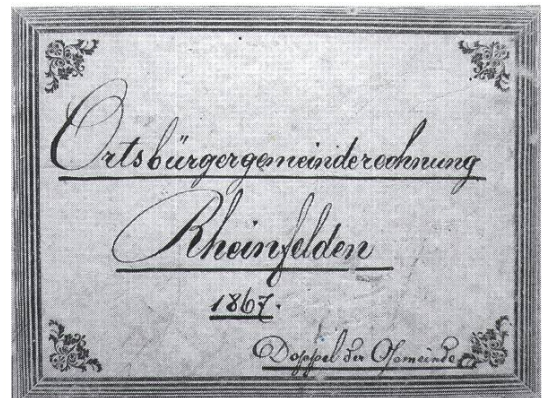 Ortsbürgergemeinderechnung
Rheinfelden
1867.
Doppel der Gemeinde